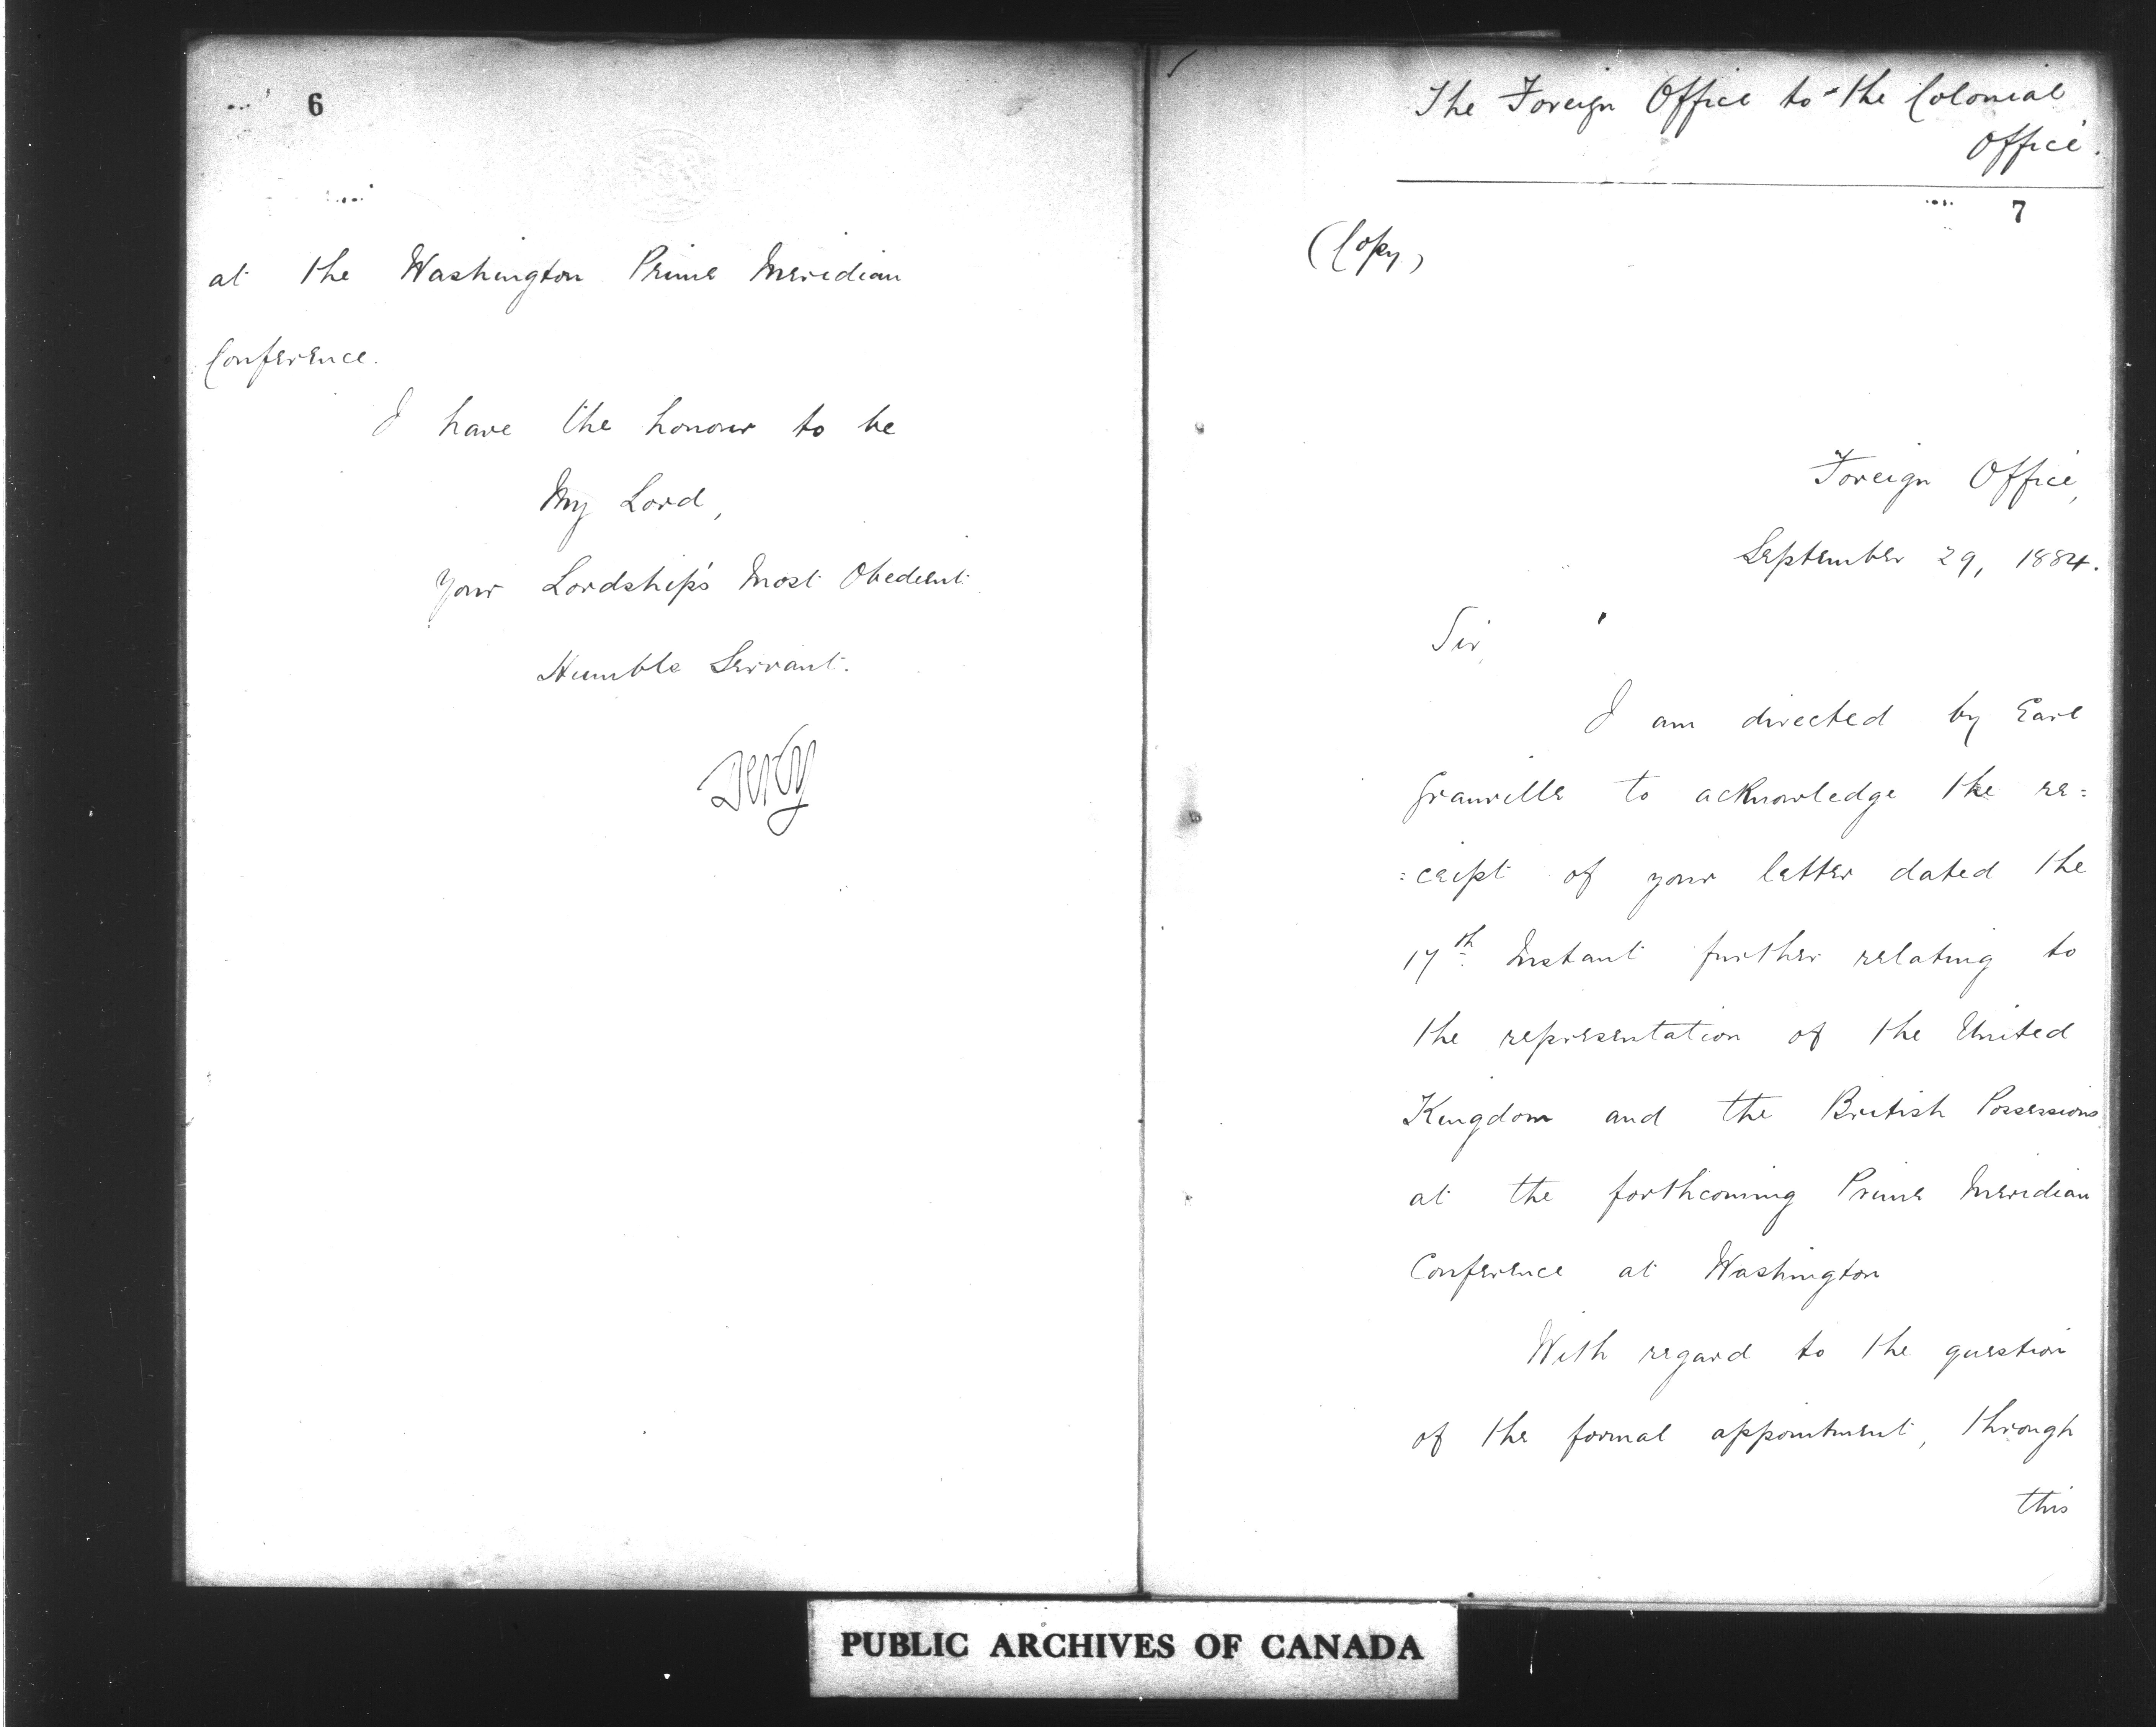 6
at the Washington Prime Meridian
Conference.
I have the honour to be
My Lord,
Your Lordship's Most Obedient
Humble Servant.
Derby
The Foreign Office to the Colonial
Office.
7
(Copy)
Foreign Office,
September 29, 1884.
Sir,
I am directed by Earl
Granville to acknowledge the re=
=ceipt of your letter dated the
17th Instant further relating to
the representation of the United
Kingdom and the British Possessions
at the forthcoming Prime Meridian
Conference at Washington
With regard to the question
of the formal appointment, through
this
PUBLIC ARCHIVES OF CANADA